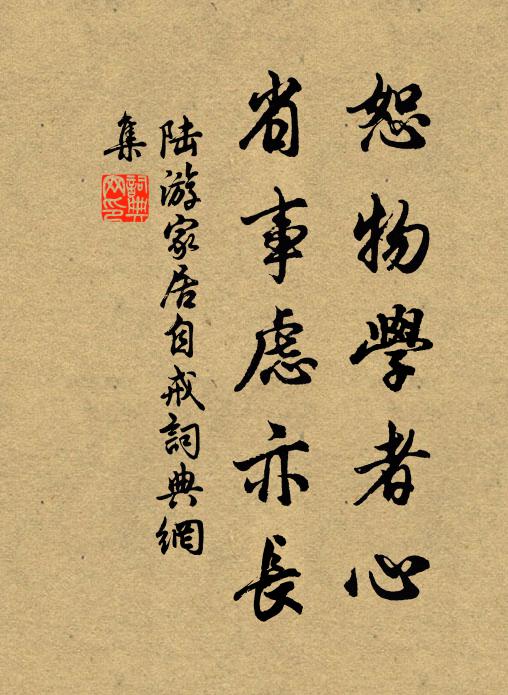 恕物學者心
省事慮亦長
陸游家居自戒詞典網
集
詞典網印